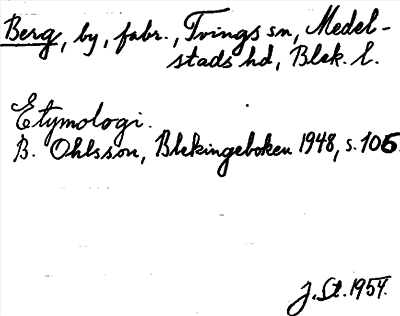 Berg, by, fabr., Tvings sn, Medel-
stads hd, Blek. l.
Etymologi.
B. Ohlsson, Blekingeboken 1948, s. 106.
J. St. 1954.